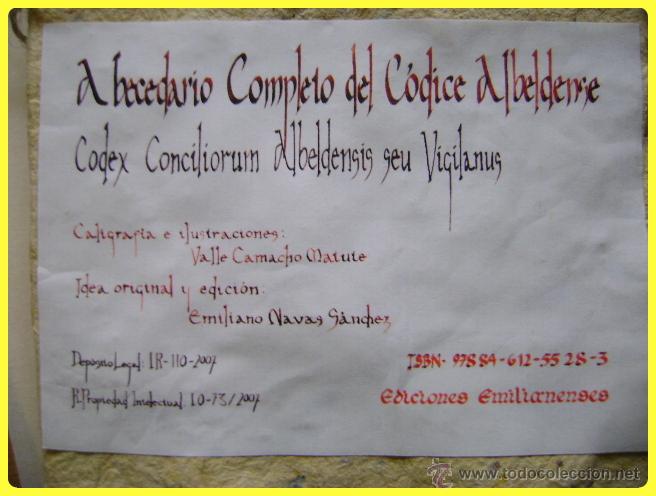 Abecedario Completo del Códice Albeldense
Codex Conciliorum Albeldensis seu Vigilanus
Caligrafía e ilustraciones:
Valle Camacho Matute
Idea original y edición:
Emiliano Navas Sánchez
Depósito Legal: LR-110-2007
R. Propiedad Intelectual: LO-73/2007
ISBN- 978 84-612-55 28-3
Ediciones Emilianenses
www.todocoleccion.net